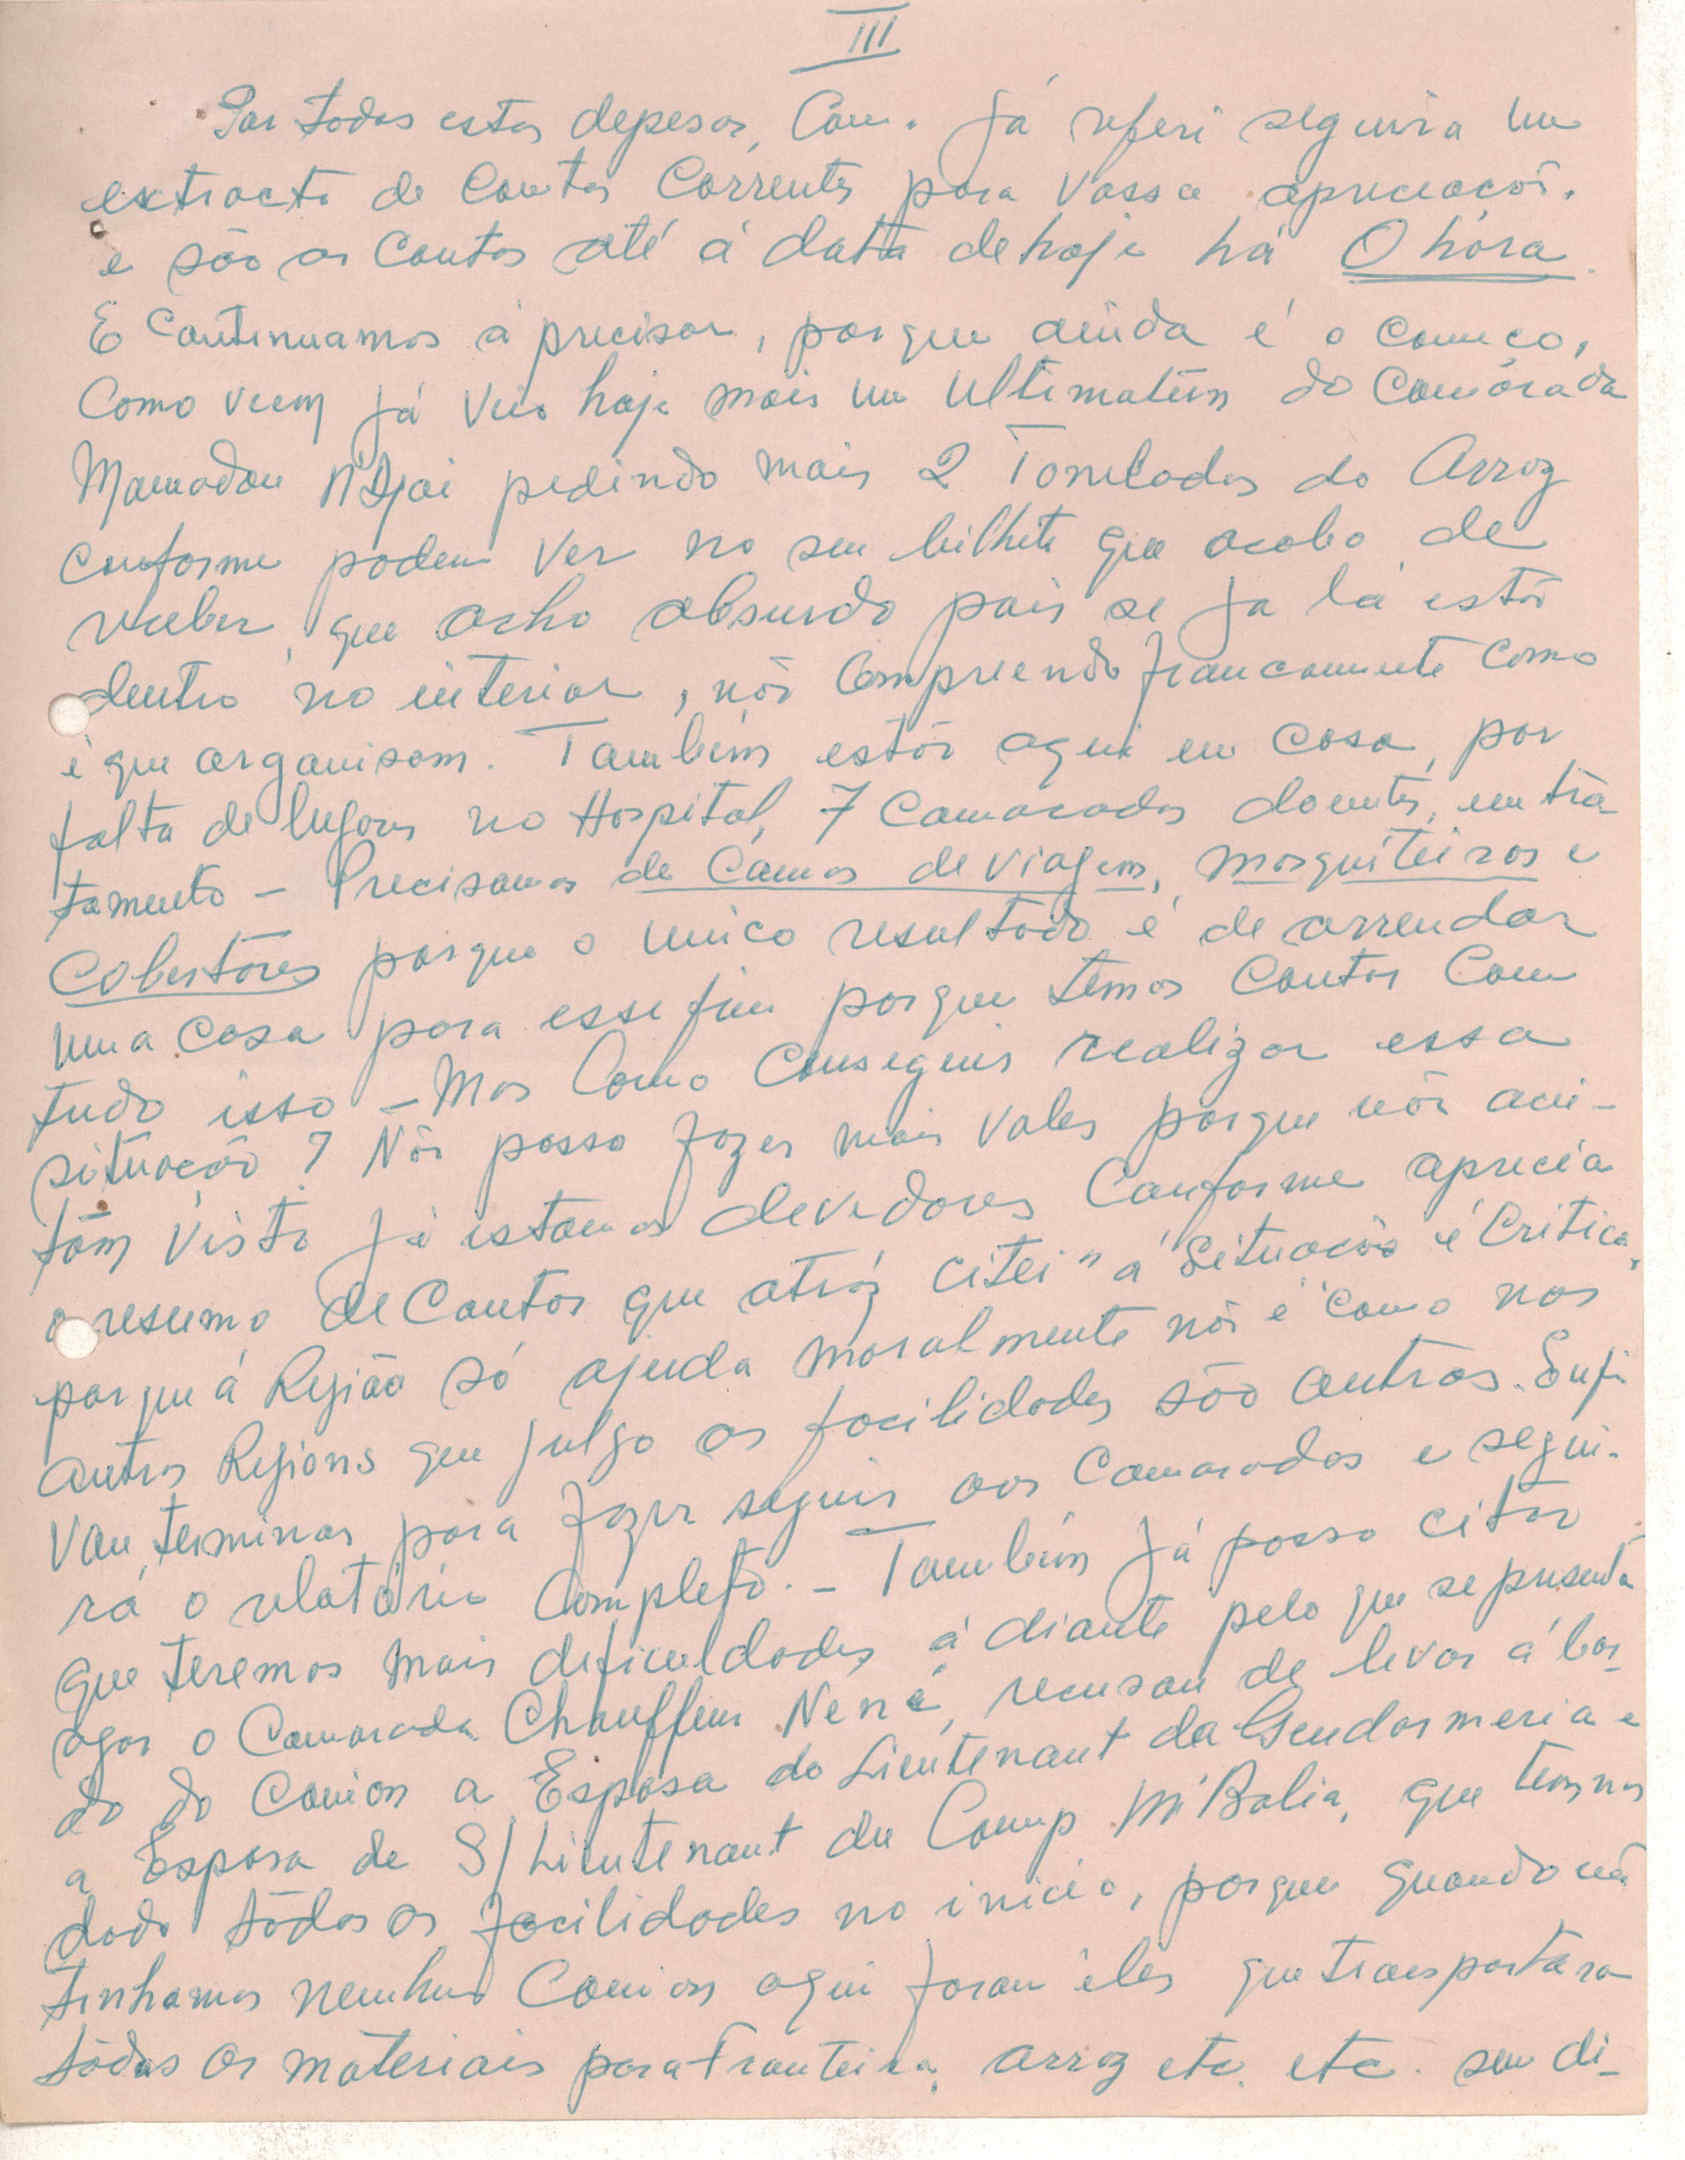 III
Por todas estas depesas, Com. já referi seguira um
extracto de Contas Correntes para Vossa apreciação.
e são as Contas até á data de hoje há O hóra.
E Continuamos á precisar, porque ainda é o começo,
Como veem já veio hoje mais um Ultimatum do Camárada
Mamadou N'Djai pedindo mais 2 Toneladas do Arroz
Conforme podem Ver no seu bilhete que acabo de
receber, que acho absurdo pois se já lá estão
dentro no interior, não Compreendo francamente Como
é que organisam. Também estão aqui em Casa, por
falta de lugares no Hospital, 7 Camaradas doentes, em tra
tamento - Precisamos de Camas de Viagem, mosquiteiros e
Cobertores porque o unico resultado é de arrendar
uma Casa para esse fim porque temos Contar Com
tudo isso - Mas Como Conseguir realizar essa
situação? Não posso fazer mais Vales porque não acei-
tam Visto já estamos devedores Conforme aprecia
o resumo de Contas que atráz citei "á Situação é Critica"
porque á Região só ajuda moralmente não é Como nas
outras Regions que julgo as facilidades são outras. Enfi
Vou terminar para fazer seguir aos Camaradas e segui-
rá o relatório Completo. - Também Já posso citar
que teremos mais deficuldades á diante pelo que se presenta
agor o Camarada Chauffeur Nené, recusou de levar á bor-
do do Camion a Esposa do Lieutenant da Gendarmeria e
a Esposa de S/Lieutenant du Camp M'Balia, que tem nos
dado tôdas as facilidades no inicio, porque quando nã
tinhamos nenhum Camion aqui foram êles que transportara
tôdas os máteriais para Fronteira, arroz etc. etc. sem di-